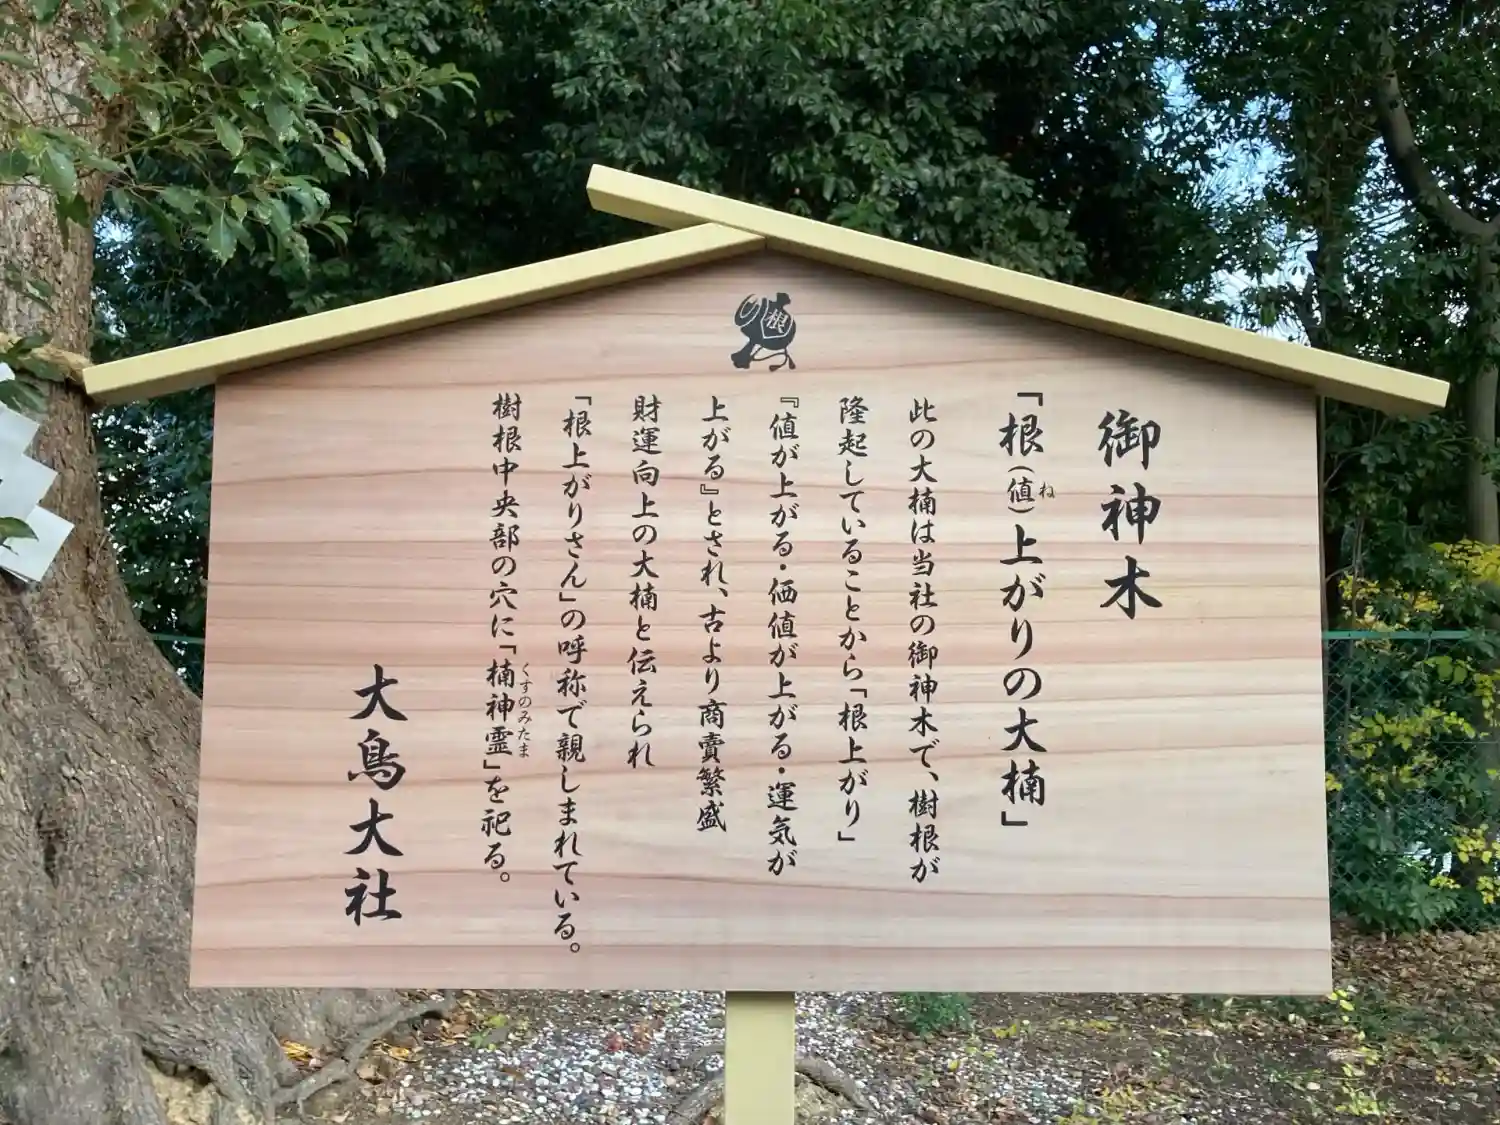 根
御神木
「根(値)上がりの大楠」
ね
此の大楠は当社の御神木で、樹根が
隆起していることから「根上がり」
『値が上がる・価値が上がる・運気が
上がる』とされ、古より商賣繁盛
財運向上の大楠と伝えられ
「根上がりさん」の呼称で親しまれている。
樹根中央部の穴に「楠神霊」を祀る。
くすのみたま
大鳥大社